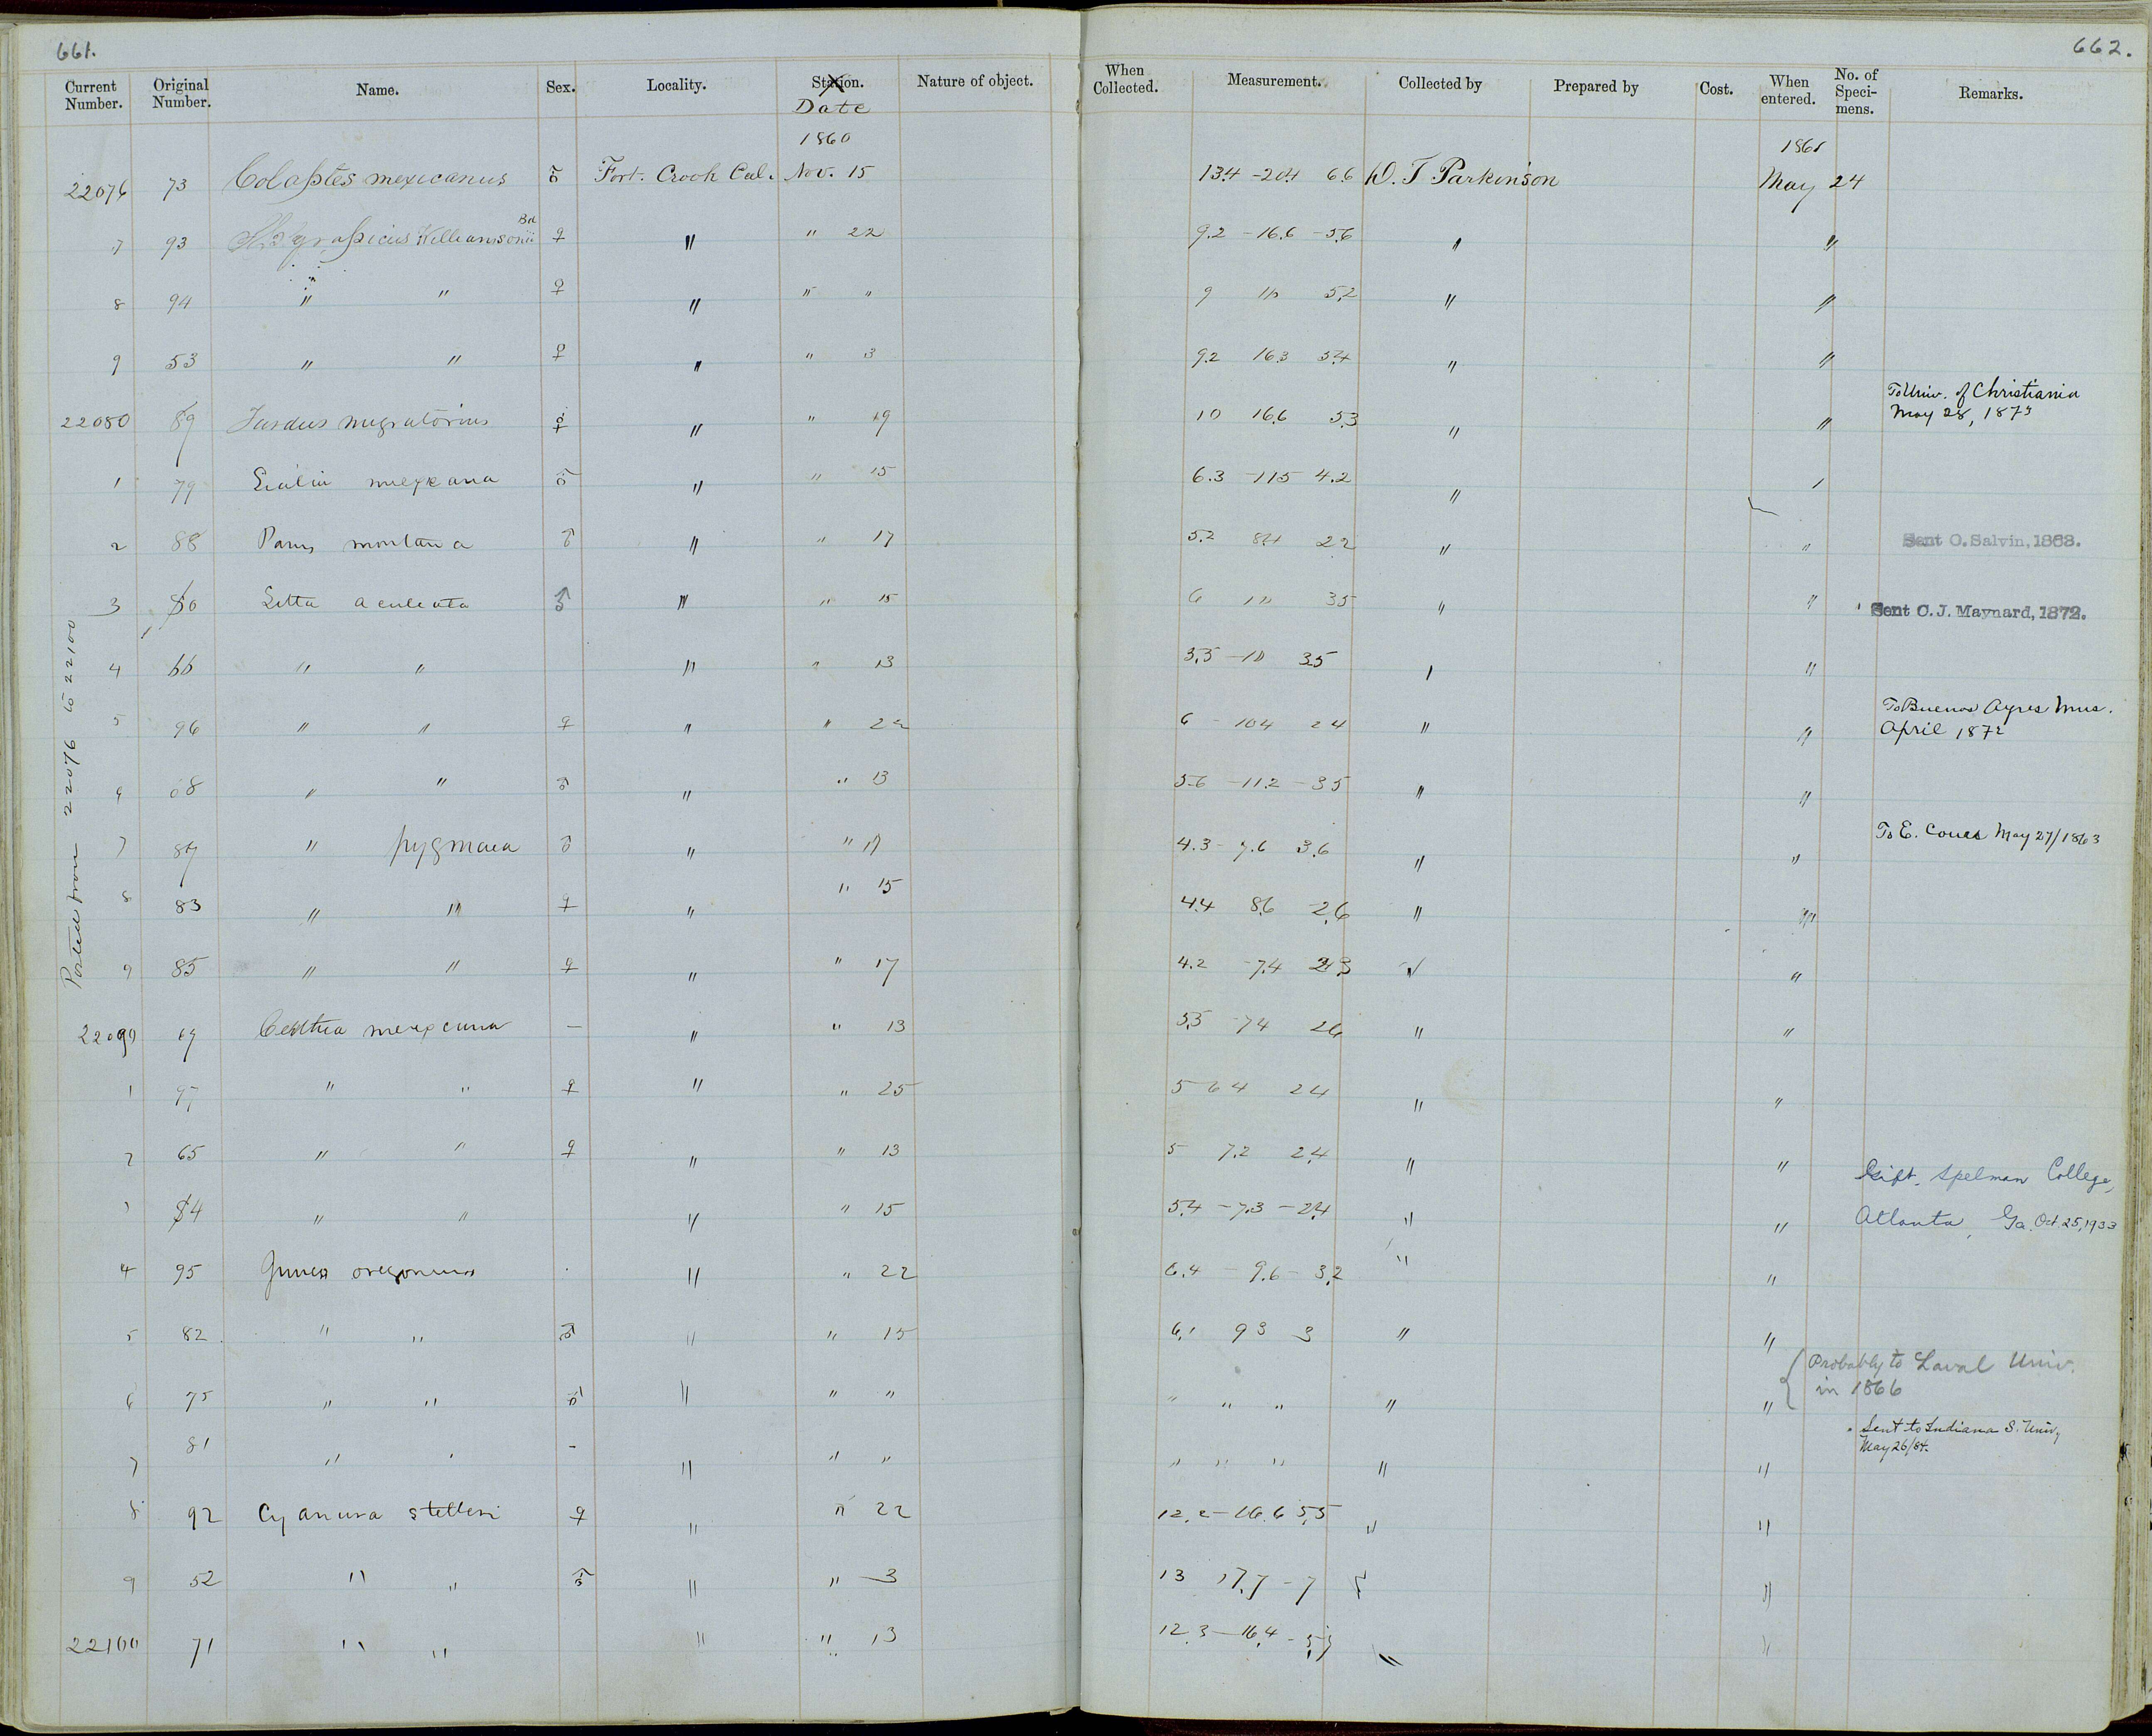 661.
662.
Current Number. Original Number. Name. Sex. Locality. Station. Date Nature of object. When Collected. Measurement. Collected by Prepared by Cost. When entered. No. of Specimens. Remarks.
1860 1861
22076 73 Colaptes mexicanus ♂ Fort. Crook Cal. Nov. 15 13.4 - 20.4 6.6 D. T Parkinson May 24
7 93 Williamsonii Bd ♀ " " 22 9.2 - 16.6 - 5.6 " "
8 94 " " ♀ " " " 9 5.2 " "
9 53 " " ♀ " " 3 9.2 16.3 5.4 " "
To Univ. of Christiania
22080 89 Turdus migratorius ♀ " " 19 10 16.6 5.3 " " May 28, 187
1 79 Sialia mexicana ♂ " " 15 6.3 - 11.5 4.2 " "
2 88 Parus montana ♂ " " 17 5.2 8.4 2.2 " " Sent O. Salvin, 1868.
3 80 Sitta aculeata ♂ " " 15 6 3.5 " " Sent C. J. Maynard, 1872.
4 66 " " " " 13 3.5 " "
To Buenos Ayres Mus.
5 96 " " ♀ " " 22 6 - 10.4 2.4 " " April 1872
6 68 " " ♂ " " 13 5.6 - 11.2 - 3.5 " "
7 87 " pygmaea ♂ " " 17 4.3 - 7.6 3.6 " " To E. Coues May 27/1863
8 83 " " ♀ " " 15 4.4 8.6 2.6 " "
9 85 " " ♀ " " 17 4.2 - 7.4 " "
22090 67 Certhia mexicana — " " 13 5.5 7.4 2.6 " "
1 97 " " ♀ " " 25 5 6.4 2.4 " "
2 65 " " ♀ " " 13 5 7.2 2.4 " "
Gift. Spelman College,
3 84 " " " " 15 5.4 - 7.3 - 2.4 " " Atlanta, Ga. Oct. 25, 1933
4 95 Junco oregonus " " 22 6.4 - 9.6 - 3.2 " "
5 82 " " ♂ " " 15 6.1 9 3 3 " "
Probably to Laval Univ.
6 75 " " ♂ " " " " " " " " in 1866
7 81 " " - " " " " " " " " Sent to Indiana S. Univ, May 26/84.
8 92 Cyanura stelleri ♀ " " 22 12.2 - 16.6 5.5 " "
9 52 " " ♂ " " 3 13 17.7 - 7 "
22100 71 " " " " 13 12.3 - 16.4 - " "
Posted from 22076 to 22100